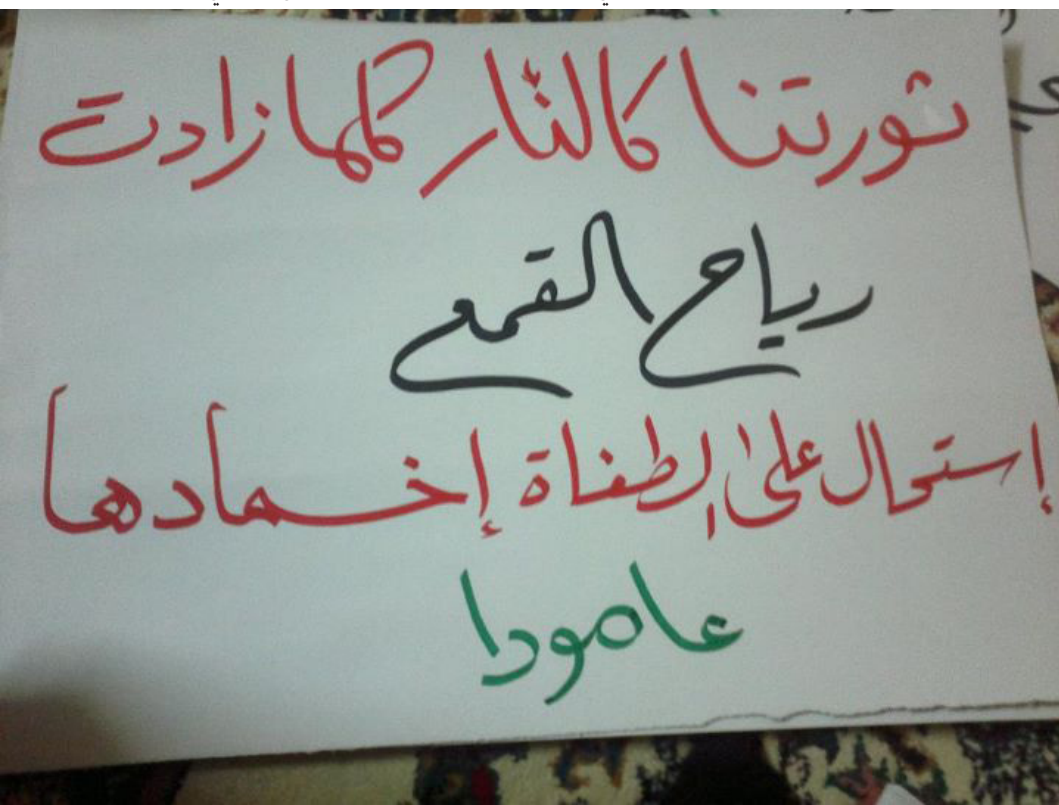 ثورتنا كالنّار كلما زادت
رياح القمع
إستحال على الطغاة إخمادها
عامودا